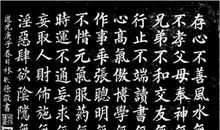 存心不善風水無
不孝父母奉神無
兄弟不和交友無
行止不端讀書無
心高氣傲博學無
作事乖張聰明無
不惜元氣服藥無
時運不通妄求無
妄取人財布施無
淫惡肆欲陰騭無
道光庚子春日林則徐敬書